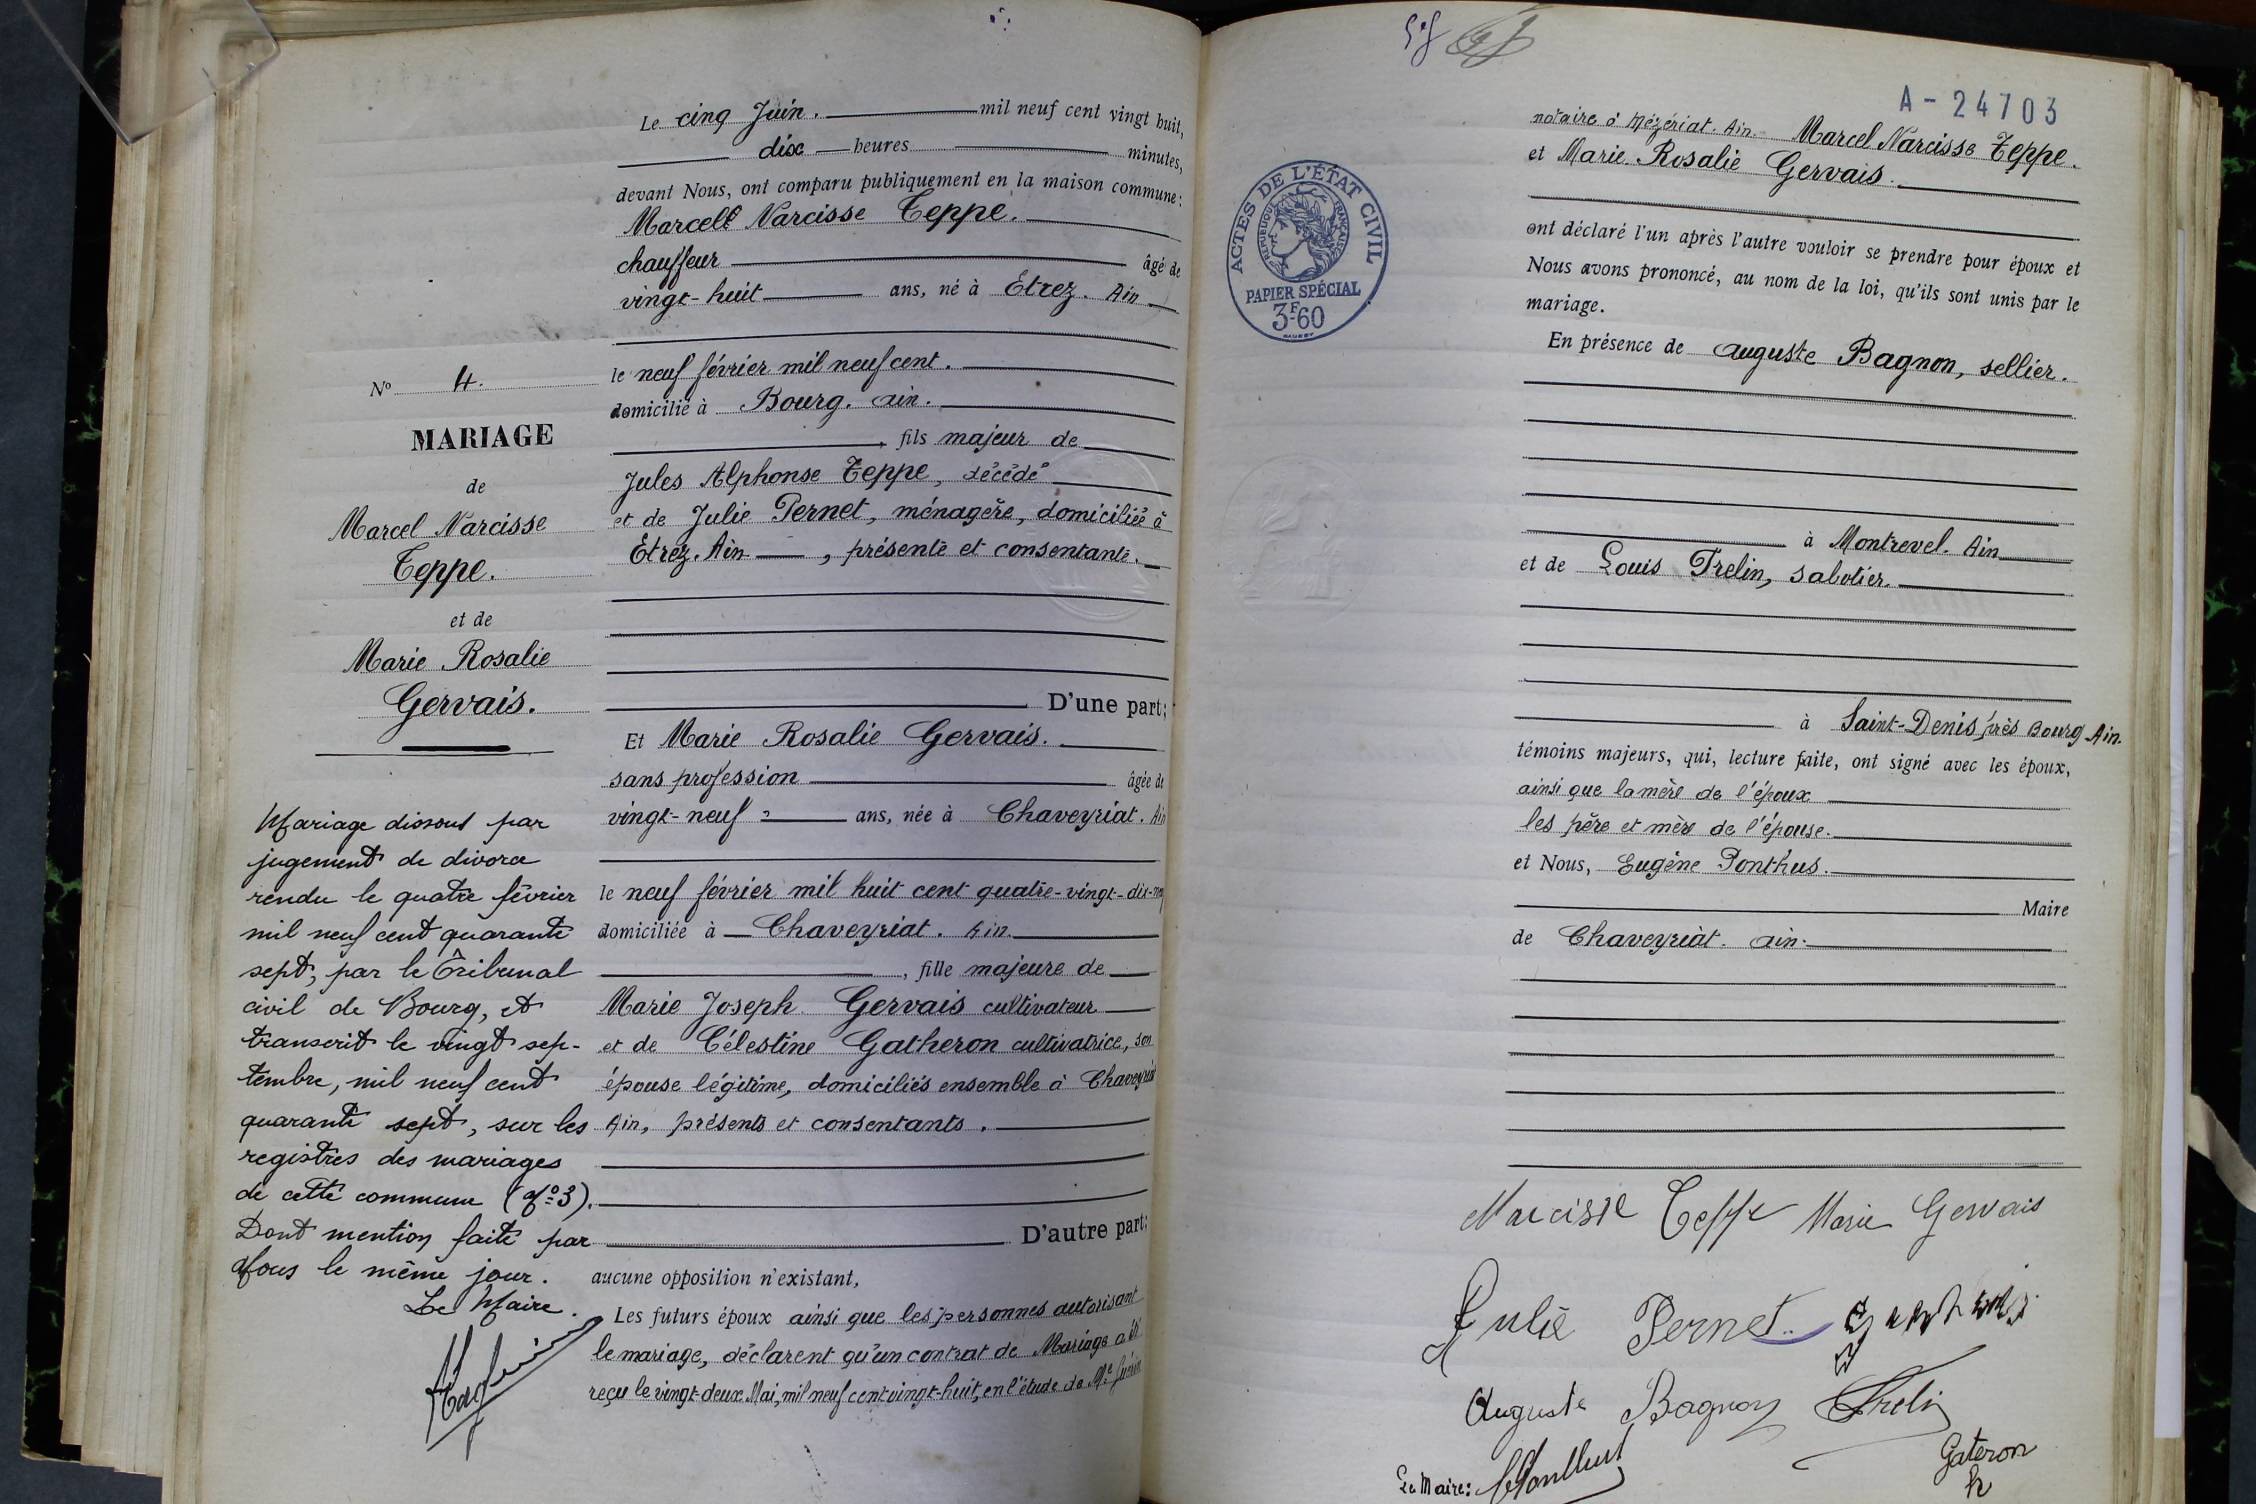 Le cinq Juin. mil neuf cent vingt huit,
dix heures minutes,
devant Nous, ont comparu publiquement en la maison commune:
Marcell Narcisse Teppe.
chauffeur âgé de
vingt-huit ans, né à Etrez. Ain
le neuf février mil neuf cent.
domicilié à Bourg. Ain.
, fils majeur de
Jules Alphonse Teppe, décédé
et de Julie Pernet, ménagère, domiciliée à
Etrez. Ain , présente et consentante.
D'une part;
Et Marie Rosalie Gervais.
sans profession âgée de
vingt-neuf ans, née à Chaveyriat. Ain
le neuf février mil huit cent quatre-vingt-dix-neuf
domiciliée à Chaveyriat. Ain.
, fille majeure de
Marie Joseph Gervais cultivateur
et de Célestine Gatheron cultivatrice, son
épouse légitime, domiciliés ensemble à Chaveyriat
Ain, présents et consentants.
D'autre part:
aucune opposition n'existant,
Les futurs époux ainsi que les personnes autorisant
le mariage, déclarent qu'un contrat de Mariage a été
reçu le vingt-deux Mai, mil neuf cent vingt-huit, en l'étude de Me
No 4.
MARIAGE
de
Marcel Narcisse
Teppe.
et de
Marie Rosalie
Gervais.
Mariage dissout par
jugement de divorce
rendu le quatre février
mil neuf cent quarante
sept, par le Tribunal
civil de Bourg, et
transcrit le vingt sep-
tembre, mil neuf cent
quarante sept, sur les
registres des mariages
de cette commune (No 3).
Dont mention faite par
Nous le même jour.
Le Maire.
A - 24703
ACTES DE L'ÉTAT CIVIL
RÉPUBLIQUE FRANÇAISE
PAPIER SPÉCIAL
3F60
notaire à Mézériat. Ain. Marcel Narcisse Teppe.
et Marie Rosalie Gervais.
ont déclaré l'un après l'autre vouloir se prendre pour époux et
Nous avons prononcé, au nom de la loi, qu'ils sont unis par le
mariage.
En présence de Auguste Bagnon, sellier.
à Montrevel. Ain
et de Louis Trelin, sabotier.
à Saint-Denis près Bourg Ain.
témoins majeurs, qui, lecture faite, ont signé avec les époux,
ainsi que la mère de l'époux
les père et mère de l'épouse.
et Nous, Eugène Ponthus.
Maire
de Chaveyriat. Ain.
Narcisse Teppe Marie Gervais
Julie Pernet
Auguste Bagnon Trelin
Gateron
Le Maire: Ponthus